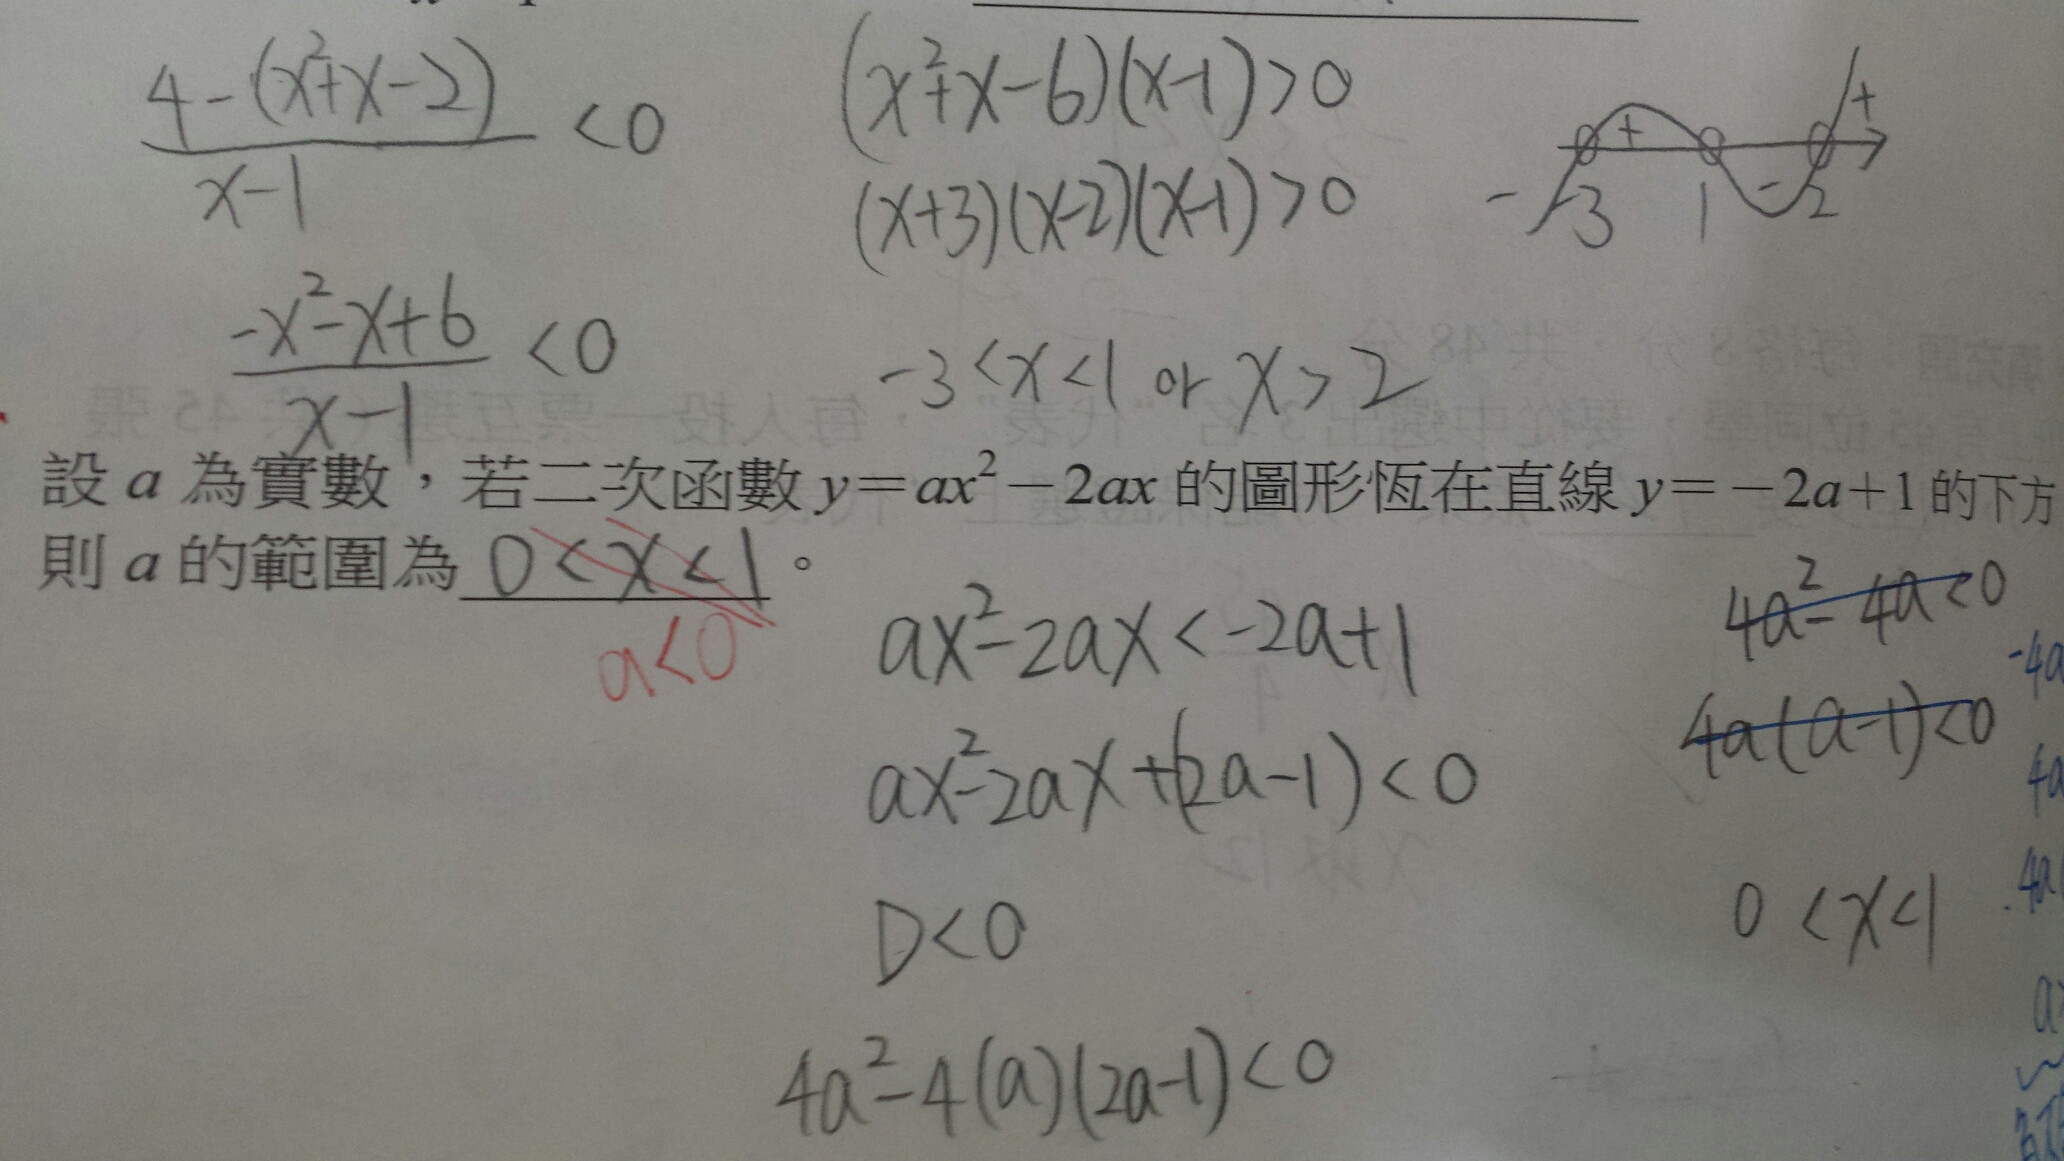 4-(x²+x-2)
x-1
<0
-x²-x+6
x-1
<0
(x²+x-6)(x-1)>0
(x+3)(x-2)(x-1)>0
-3<x<1 or x>2
- + - +
-3 1 2
設 a 為實數，若二次函數 y=ax²-2ax 的圖形恆在直線 y=-2a+1 的下方
則 a 的範圍為 0<x<1 。
a<0
ax²-2ax<-2a+1
ax²-2ax+(2a-1)<0
D<0
4a²-4(a)(2a-1)<0
4a²-4a<0
4a(a-1)<0
0<x<1
-4a
4a
4a